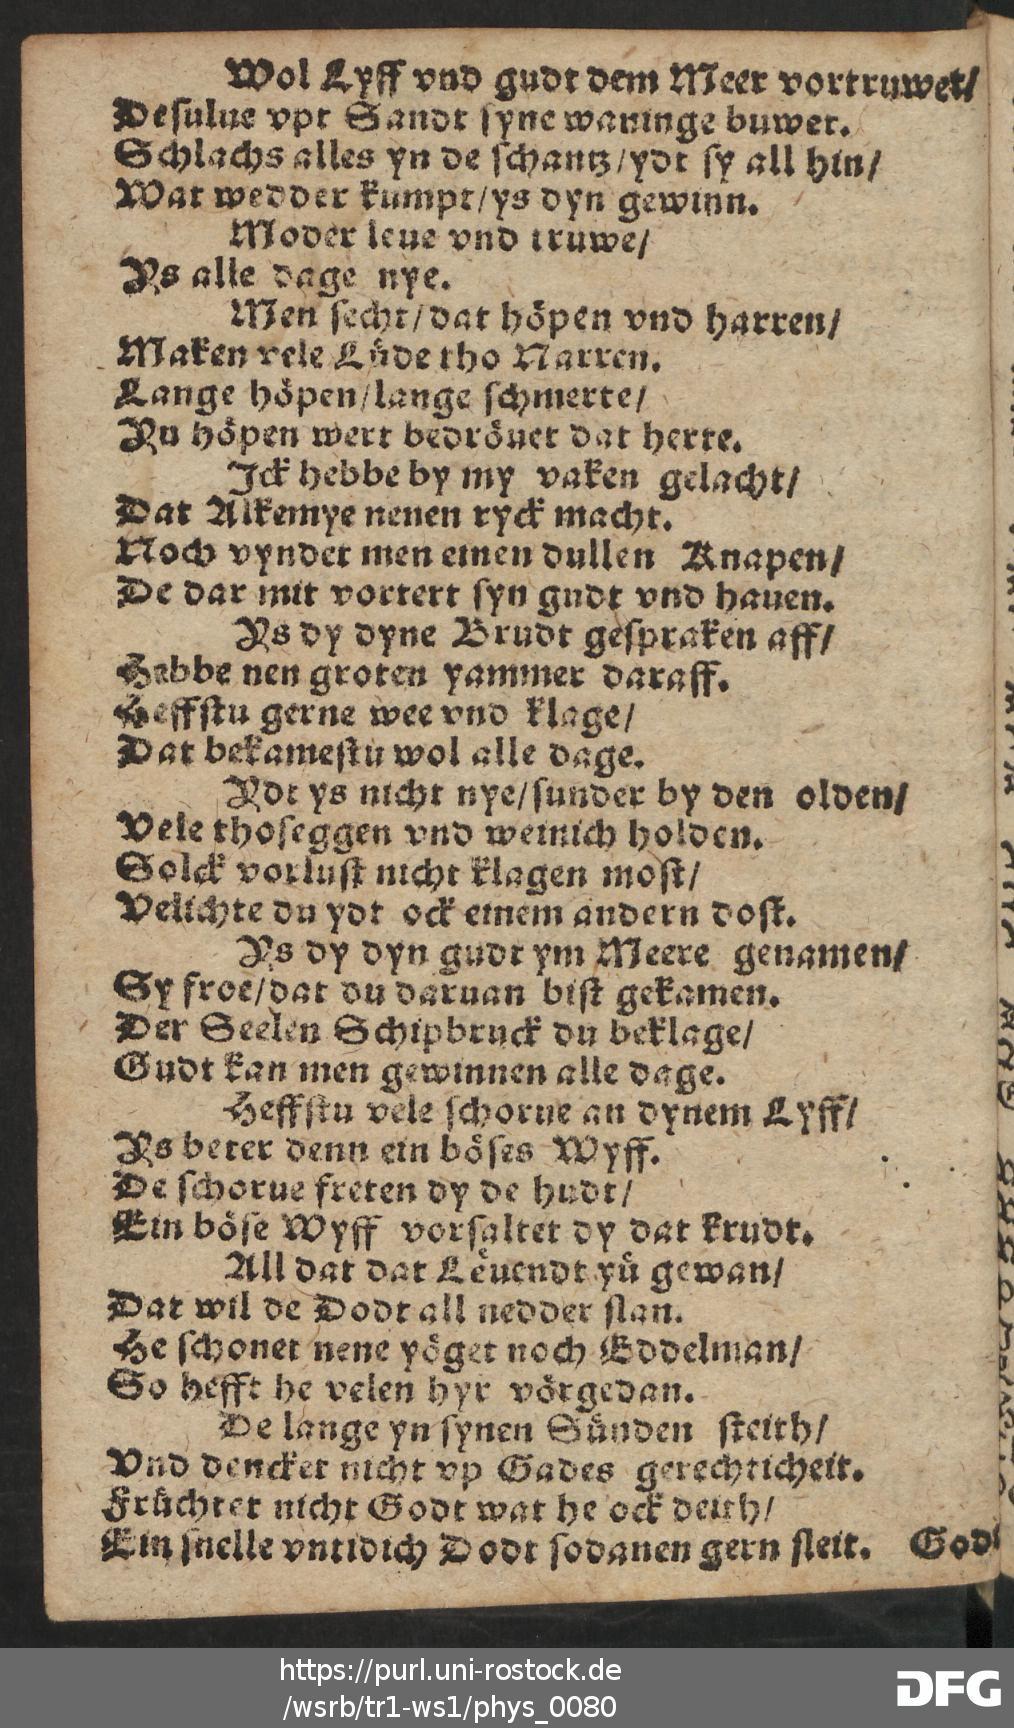 Wol Lyff vnd gudt dem Meer vortruwet/
Desulue vpt Sandt syne waninge buwet.
Schlachs alles yn de schantz/ydt sy all hin/
Wat wedder kumpt/ys dyn gewinn.
Moder leue vnd truwe/
Ys alle dage nye.
Men secht/dat höpen vnd harren/
Maken vele Lüde tho Narren.
Lange höpen/lange schmerte/
Yn höpen wert bedröuet dat herte.
Ick hebbe by my vaken gelacht/
Dat Alkemye nenen ryck macht.
Noch vyndet men einen dullen Knapen/
De dar mit vortert syn gudt vnd hauen.
Ys dy dyne Brudt gespraken aff/
Hebbe nen groten yammer daraff.
Heffstu gerne wee vnd klage/
Dat bekamestu wol alle dage.
Ydt ys nicht nye/sunder by den olden/
Vele thoseggen vnd weinich holden.
Solck vorlust nicht klagen most/
Velichte du ydt ock einem andern dost.
Ys dy dyn gudt ym Meere genamen/
Sy froe/dat du daruan bist gekamen.
Der Seelen Schipbruck du beklage/
Gudt kan men gewinnen alle dage.
Heffstu vele schorue an dynem Lyff/
Ys beter denn ein böses Wyff.
De schorue freten dy de hudt/
Ein böse Wyff vorsaltet dy dat krudt.
All dat dat Leuendt yü gewan/
Dat wil de Dodt all nedder slan.
He schonet nene yöget noch Eddelman/
So hefft he velen hyr vörgedan.
De lange yn synen Sünden steith/
Vnd dencket nicht vp Gades gerechticheit.
Früchtet nicht Godt wat he ock deith/
Ein snelle vntidich Dodt sodanen gern sleit. Godt
https://purl.uni-rostock.de
/wsrb/tr1-ws1/phys_0080
DFG